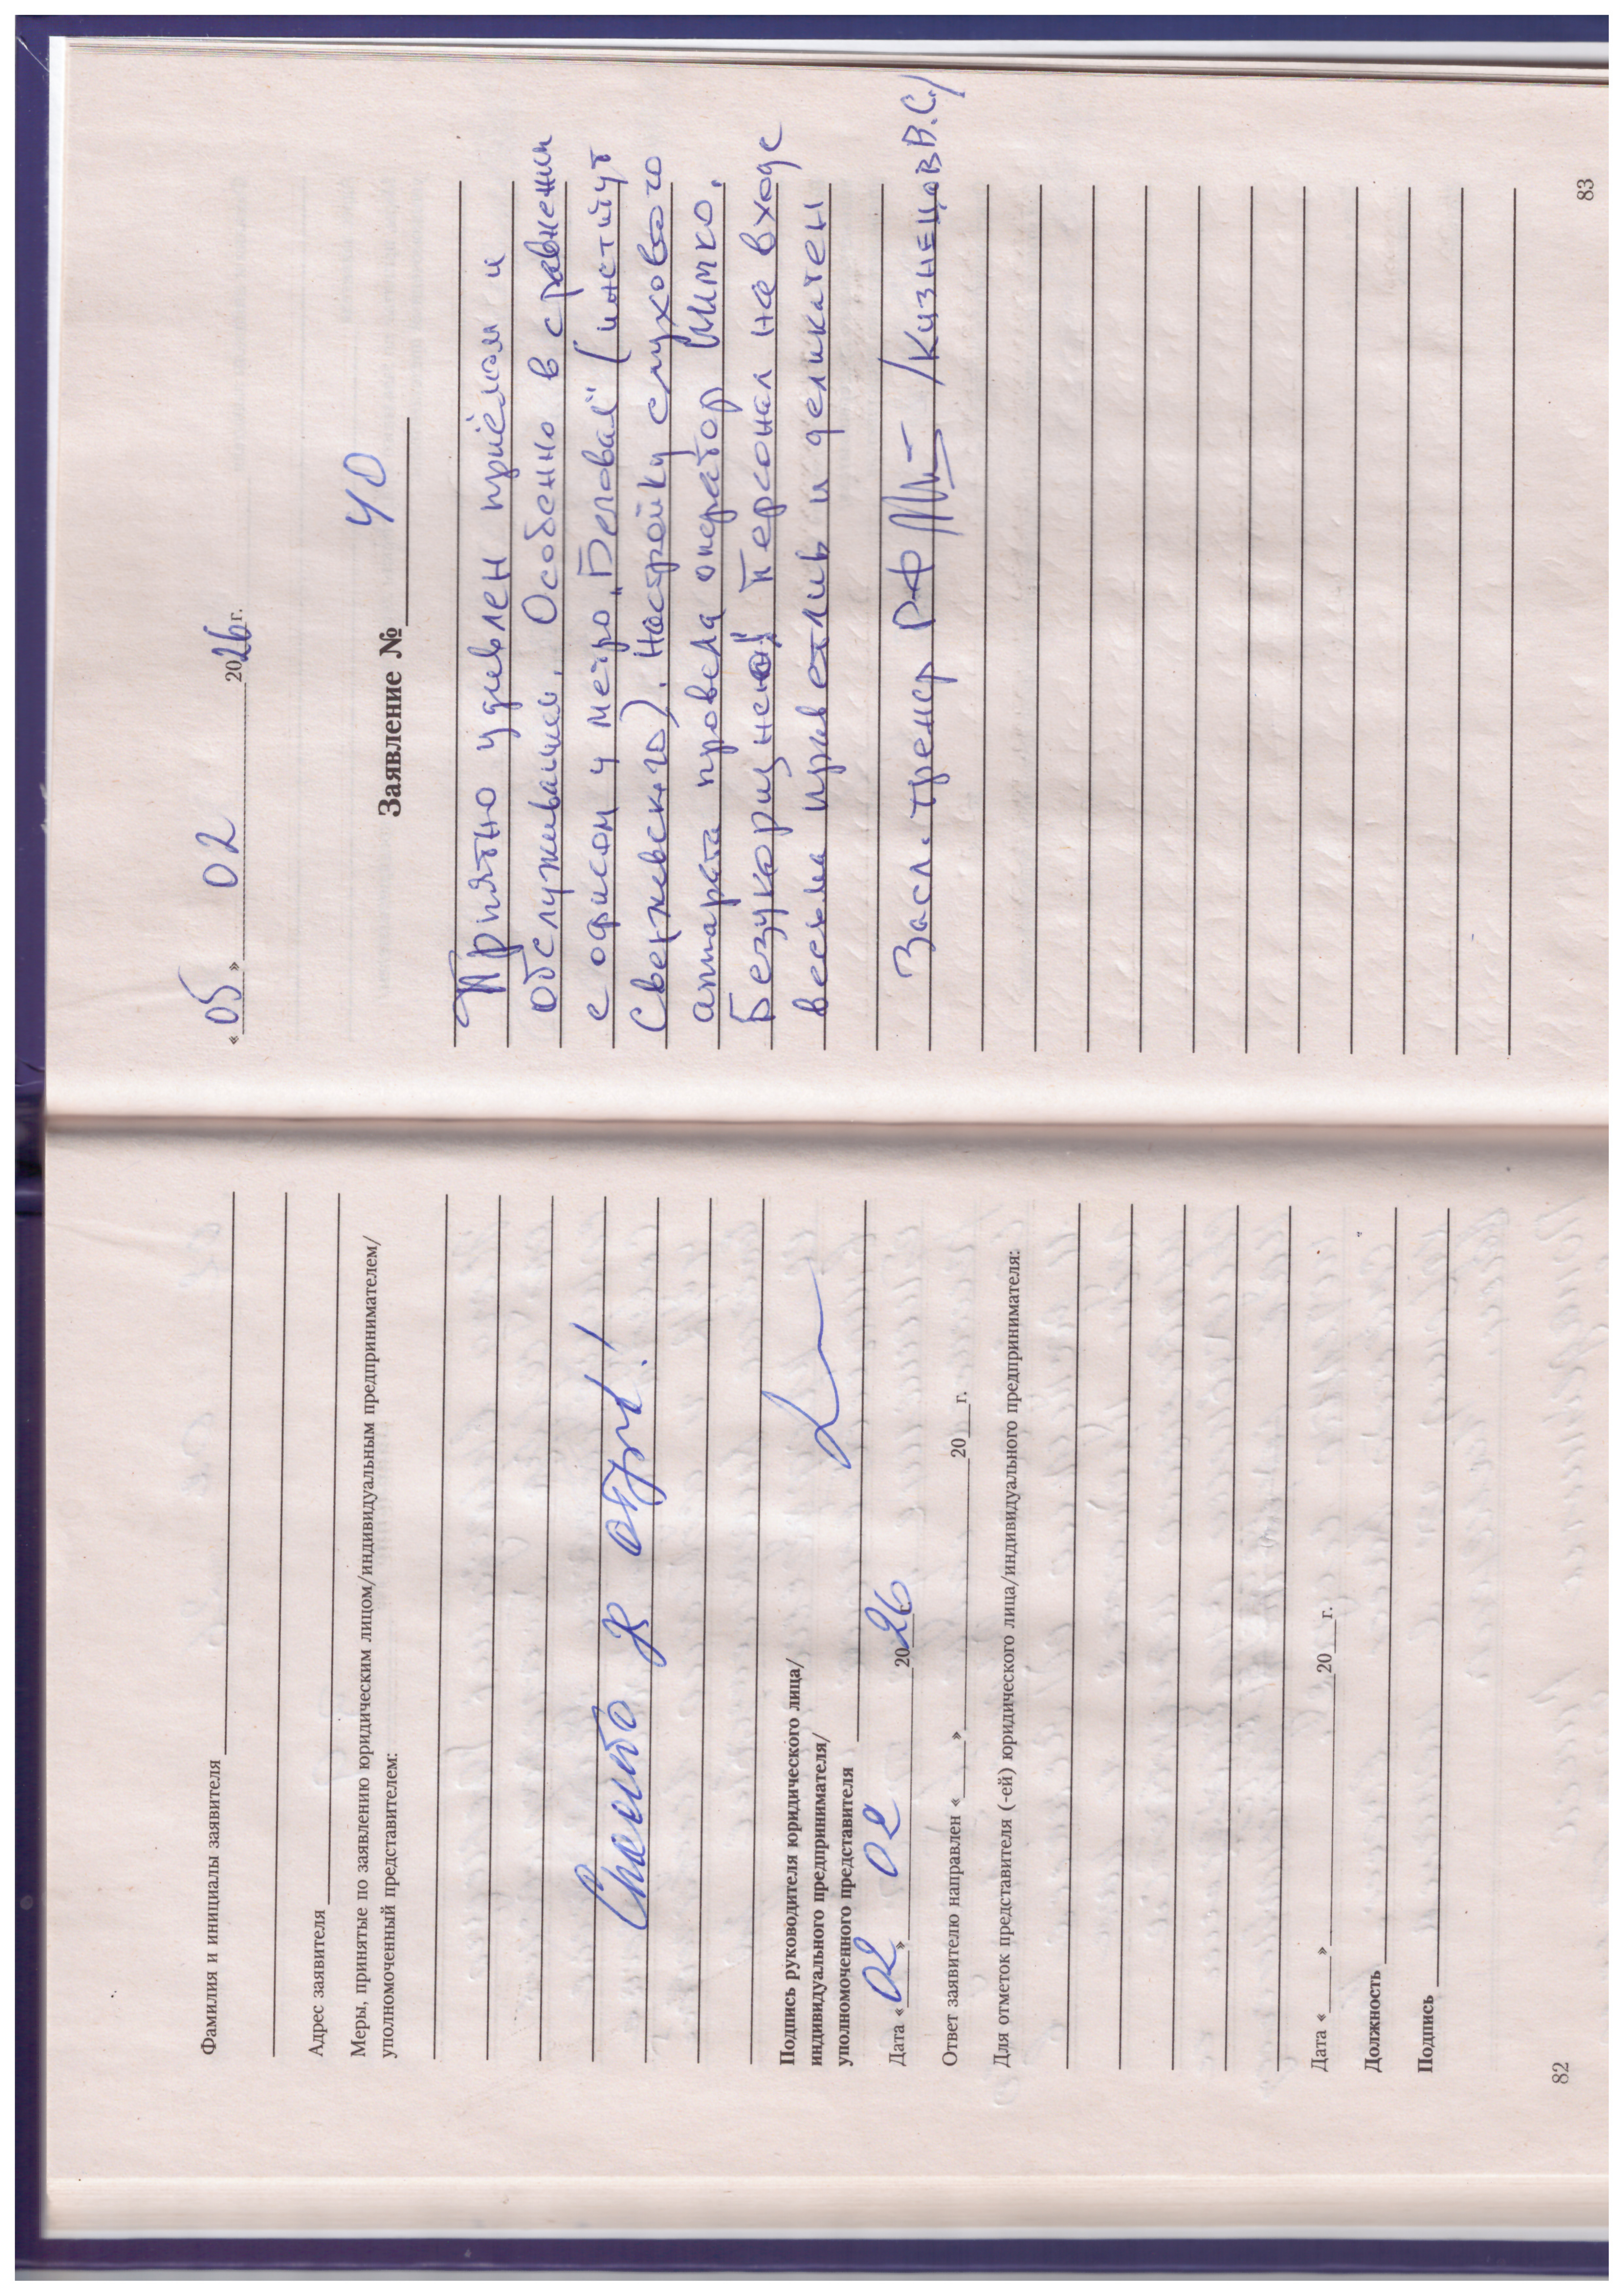 Фамилия и инициалы заявителя
Адрес заявителя
Меры, принятые по заявлению юридическим лицом/индивидуальным предпринимателем/
уполномоченный представителем:
Спасибо за отзыв!
Подпись руководителя юридического лица/
индивидуального предпринимателя/
уполномоченного представителя
Дата «02» 02 2026
Ответ заявителю направлен « » 20 г.
Для отметок представителя (-ей) юридического лица/индивидуального предпринимателя:
Дата « » 20 г.
Должность
Подпись
82
«05» 02 2026 г.
Заявление № 40
Приятно удивлен приёмом и
обслуживанием. Особенно в сравнении
с офисом у метро „Беговая" (институт
Свержевского). Настройку слухового
аппарата провела оператор Шимко.
Безукоризнено! Персонал на входе
весьма приветлив и деликатен
Засл. тренер РФ /Кузнецов В.С./
83